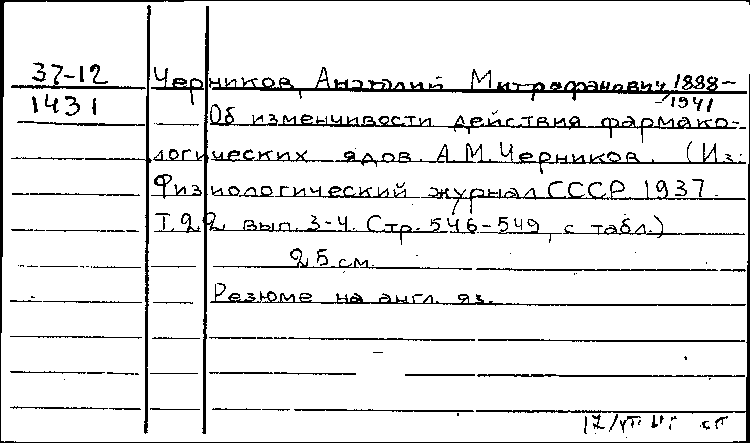 37-12
1431
Черников, Анатолий Митрофанович, 1888-
-1941
Об изменчивости действия фармако-
логических ядов. А.М. Черников. (Из:
Физиологический журнал СССР. 1937.
Т. 22 вып. 3-4. Стр. 546-549, с табл.)
25 см.
Резюме на англ. яз.